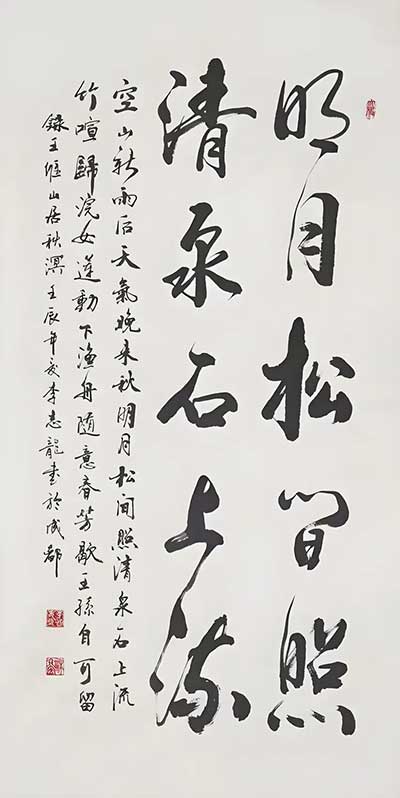 明月松间照
清泉石上流
空山新雨后天氣晚来秋明月松间照清泉石上流
竹喧歸浣女莲動下渔舟随意春芳歇王孫自可留
録王维山居秋溟壬辰年夏李志龍書於成都